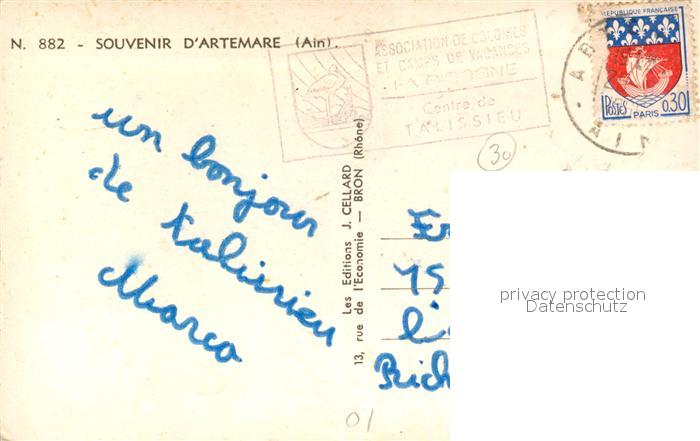 N. 882 - SOUVENIR D'ARTEMARE (Ain).
ASSOCIATION DE COLONIES
ET CAMPS DE VACANCES
Centre de
TALISSIEU
REPUBLIQUE FRANÇAISE
POSTES 0,30
PARIS
30
un bonjour
de talissieu
Marco
Les Editions J. CELLARD
13, rue de l'Economie — BRON (Rhône)
Er
19
l'
Rich
privacy protection
Datenschutz
01